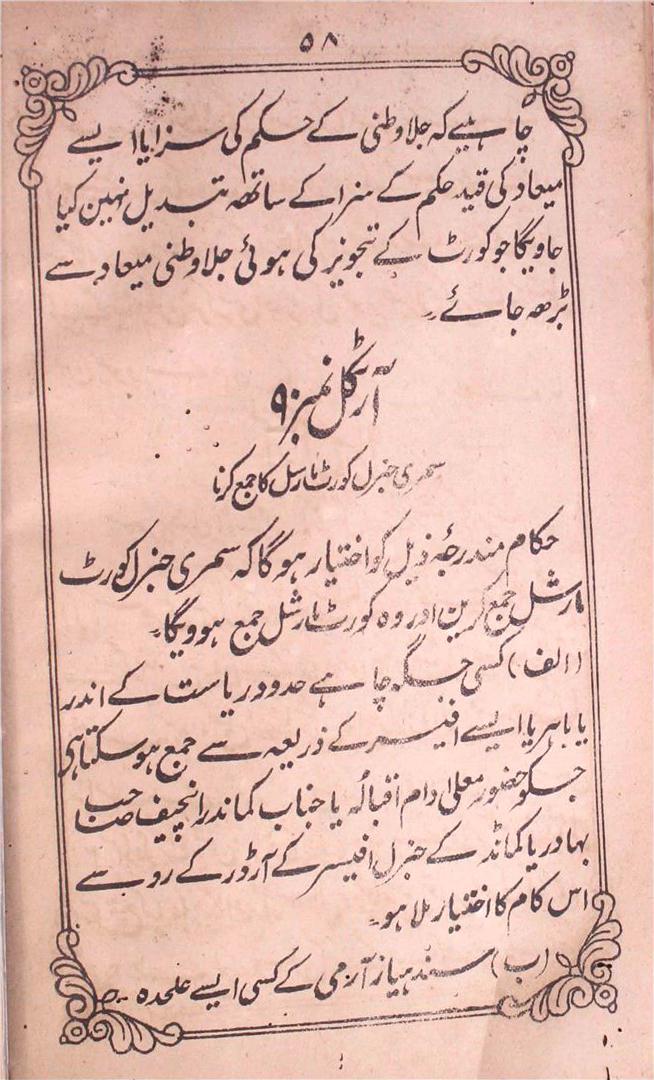 ۵۸
چاہیے کہ جلاوطنی کے حکم کی سزا یا ایسے
میعاد کی قید حکم کے سزا کے ساتھ تبدیل نہین کیا
جاویگا جو کورٹ کے تجویز کی ہوئی جلاوطنی میعاد سے
بڑھ جائے۔
آرٹکل نمبر ۹
سمری جنرل کورٹ مارشل کا جمع کرنا
حکام مندرجۂ ذیل کو اختیار ہوگا کہ سمری جنرل کورٹ
مارشل جمع کرین اور وہ کورٹ مارشل جمع ہوویگا۔
(الف) کسی جگہ چاہے حدود ریاست کے اندر
یا باہر یا ایسے افیسر کے ذریعہ سے جمع ہوسکتا ہی
جسکو حضور معلی دام اقبالہ یا جناب کمانڈر انچیف صاحب
بہادر یا کمانڈ کے جنرل افیسر کے آرڈر کے رو سے
اس کام کا اختیار ملا ہو۔
(ب) سندہیاز آرمی کے کسی ایسے علحدہ